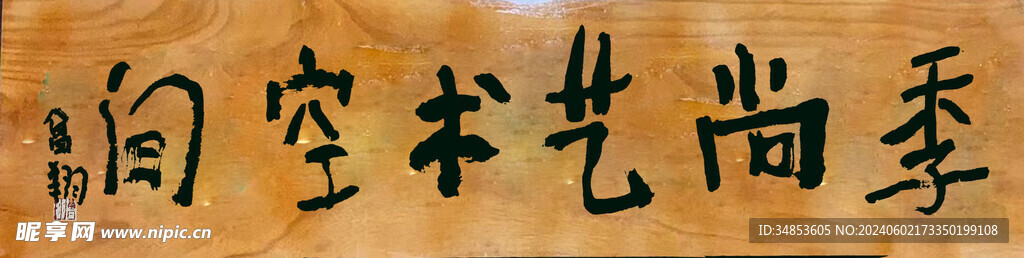 季尚艺术空间
昌翔
昵享网 www.nipic.cn
ID:34853605 NO:20240602173350199108